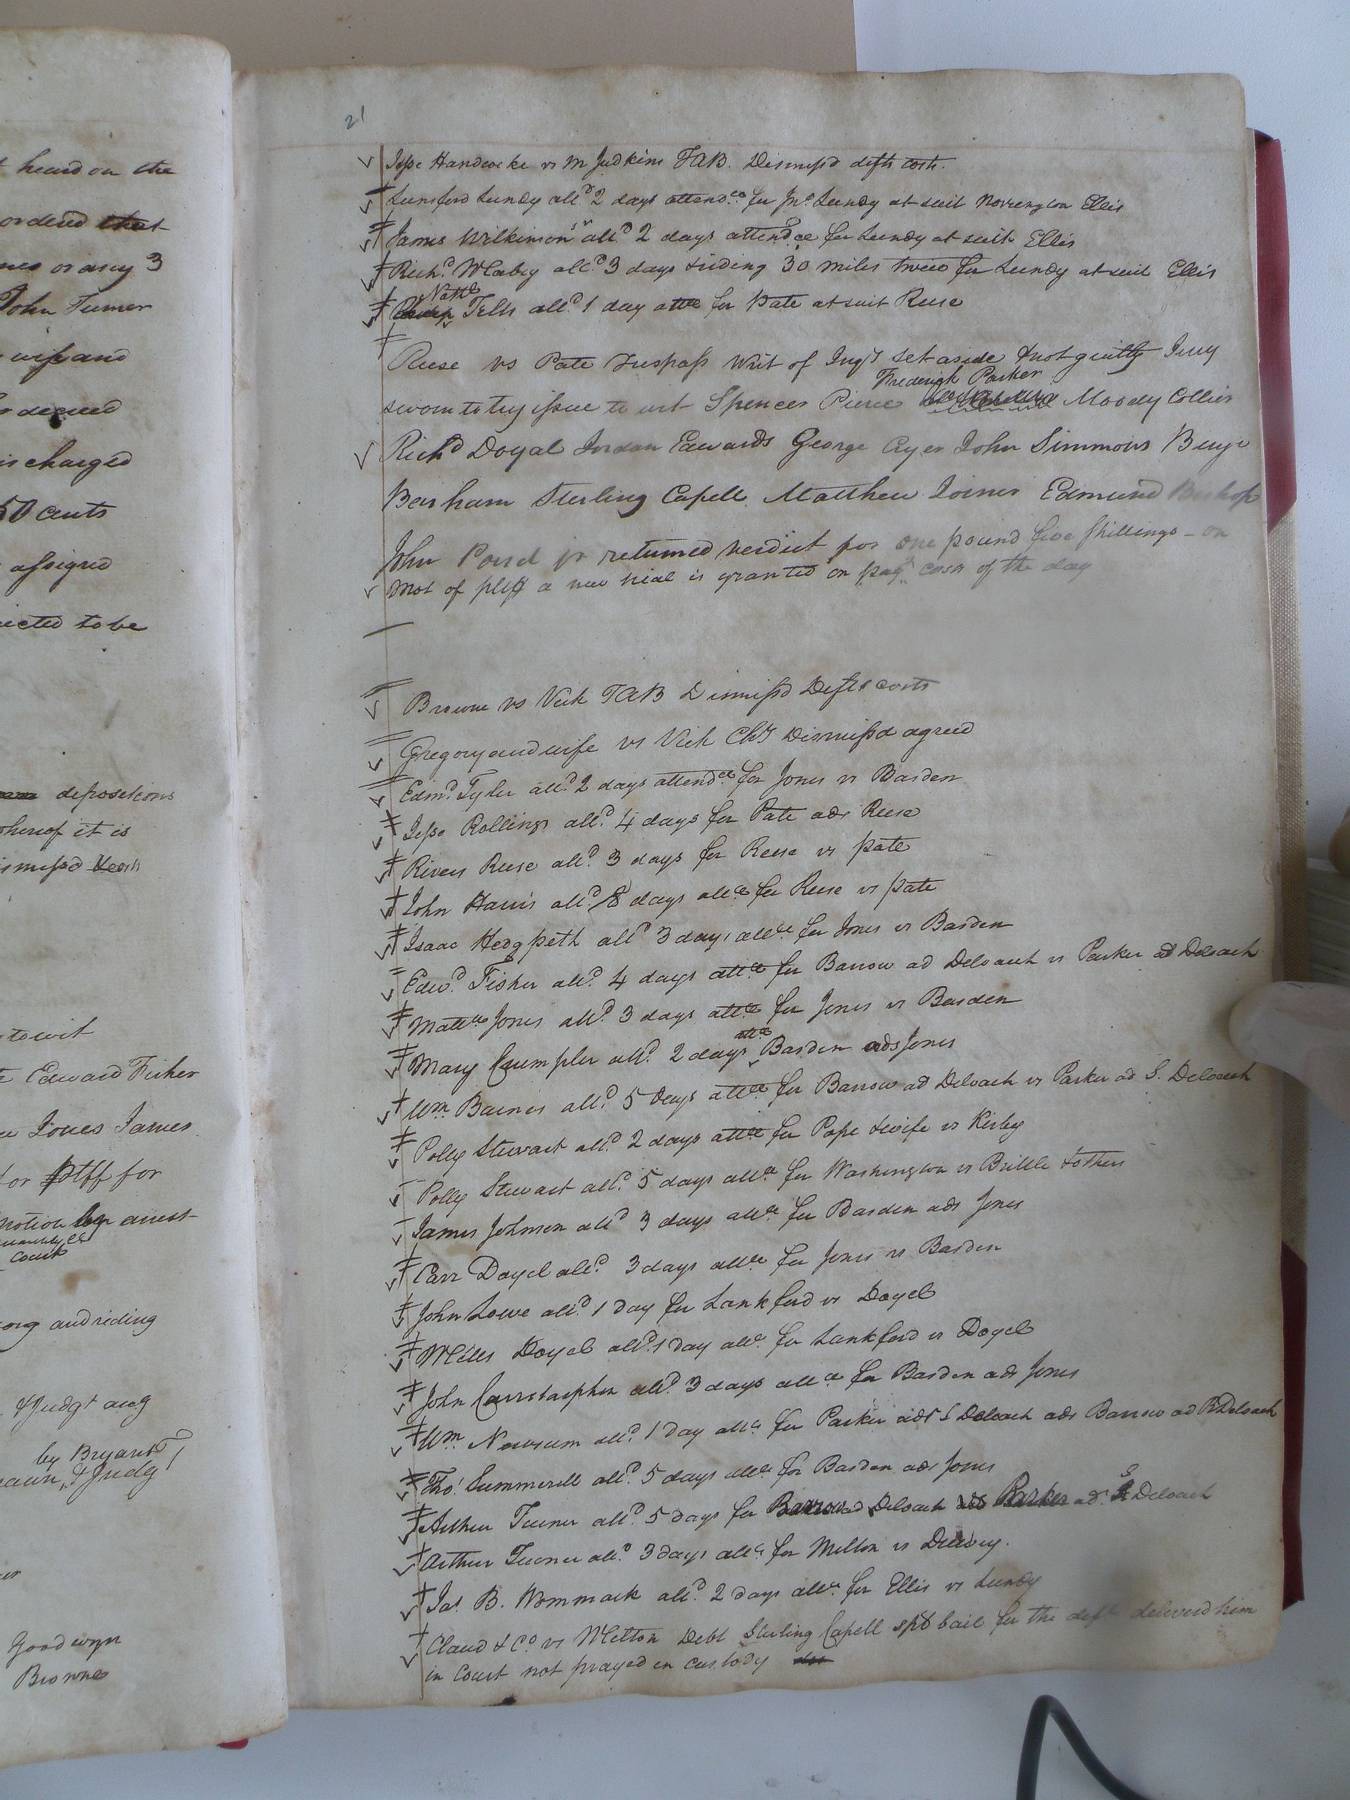 t heard on the
ordered that
or any 3
John Turner
wife and
deceed
is charged
50 cents
assigned
ected to be
depositions
whereof it is
ismissd
to wit
Edward Fisher
Jones James
for ptff for
motion by arrest
Court
and riding
& Judgt awg
by Bryant
& Judgt
Goodwyn
Browne
21
Jesse Handcocke vs M Judkins TAB. Dismissd defts costs.
Lunsford Lundy alld 2 days attendce for Jno Lundy at suit Norrington Ellis
James Wilkinson alld 2 days attendce for Lundy at suit Ellis
Richd Mabry alld 3 days & riding 30 miles twice for Lundy at suit Ellis
Natt Tells alld 1 day atte for Pate at suit Reese
Reese vs Pate Trespass Writ of Inqy set aside & not guilty Jury
Frederick Parker
sworn to try issue to wit Spencer Pierce Moody Collier
Richd Doyal Jordan Edwards George Ayer John Simmons Benja
Barham Sterling Capell Matthew Joiner Edmund Bishop
John Pond jr returned verdict for one pound five shillings - on
mot of pltff a new trial is granted on payt costs of the day
Browne vs Vick TAB Dismissd Defts costs
Gregory and wife vs Vick Chy Dismissd agreed
Edmd Tyler alld 2 days attendce for Jones vs Barden
Jesse Rollings alld 4 days for Pate ads Reese
Rivers Reese alld 3 days for Reese vs Pate
John Harris alld 8 days attce for Reese vs Pate
Isaac Hedgpeth alld 3 days attce for Jones vs Barden
Edwd Fisher alld 4 days attce for Barrow ad Deloach vs Parker ad Deloach
Mattw Jones alld 3 days attce for Jones vs Barden
attce
Mary Crumpler alld 2 days Barden ads Jones
Wm Barnes alld 5 days attce for Barrow ad Deloach vs Parker ad S. Deloach
Polly Stewart alld 2 days attce for Pope & wife vs Kirby
Polly Stewart alld 5 days attce for Washington vs Brittle & others
James Johnson alld 3 days attce for Barden ads Jones
Carr Doyel alld 3 days attce for Jones vs Barden
John Lowe alld 1 day for Lankford vs Doyel
Mills Doyel alld 1 day attce for Lankford vs Doyel
John Carrstarphen alld 3 days attce for Barden ads Jones
Wm Newsum alld 1 day attce for Parker ads S Deloach ads Barrow ad R Deloach
Tho' Summerell alld 5 days attce for Barden ads Jones
Arthur Turner alld 5 days for Barrow ad Deloach ads Parker ad S Deloach
Arthur Turner alld 3 days attce for Melton vs Delony.
Jas. B. Wommack alld 2 days attce for Ellis vs Lundy
Claud & Co vs Melton Debt Sterling Capell spl bail for the deft deliverd him
in Court not prayed in custody